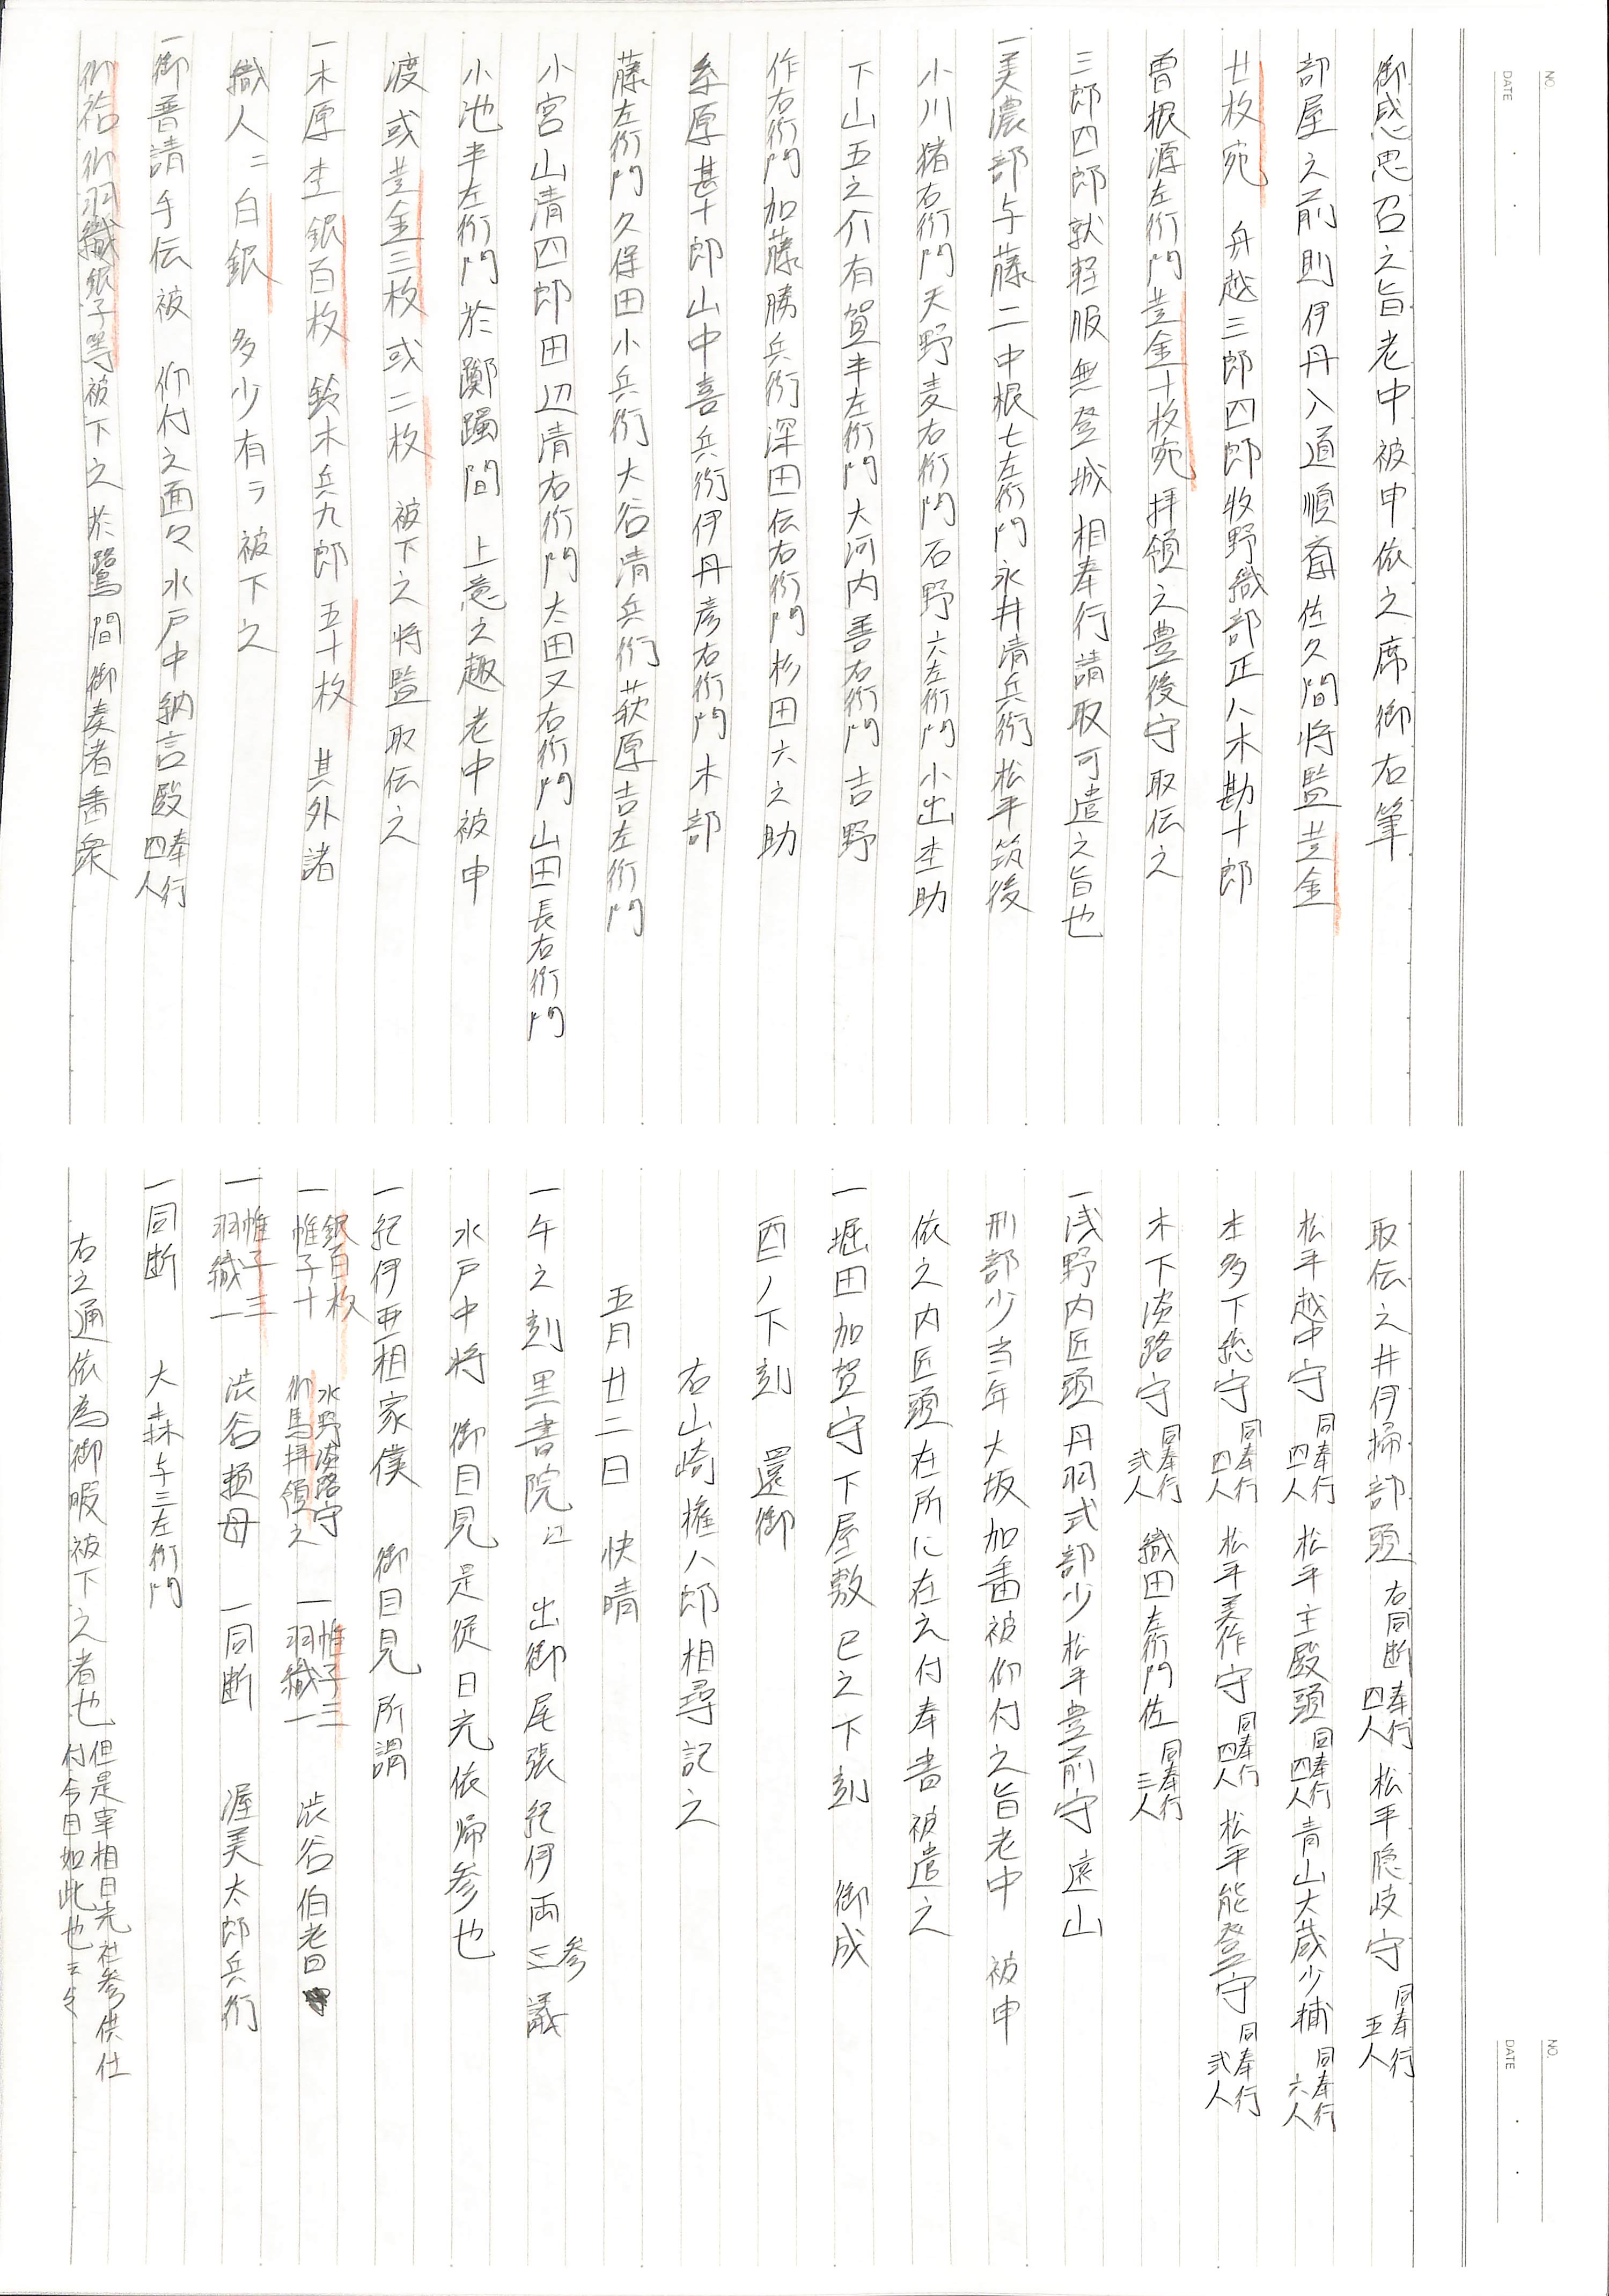 NO.
DATE
御感思召之旨老中被申依之席御右筆
部屋之前則伊丹入道順斎佐久間将監黄金
廿枚宛 舟越三郎四郎牧野織部正八木勘十郎
曽根源左衛門黄金十枚宛拝領之豊後守取伝之
三郎四郎就軽服無登城相奉行請取可遣之旨也
一美濃部与藤二中根七左衛門永井清兵衛松平筑後
小川猪右衛門天野麦右衛門石野六左衛門小出杢助
下山五之介有賀半左衛門大河内善右衛門吉野
作右衛門加藤勝兵衛深田伝右衛門杉田六之助
桑原甚十郎山中喜兵衛伊丹彦右衛門木部
藤左衛門久保田小兵衛大谷清兵衛萩原吉左衛門
小宮山清四郎田辺清右衛門太田又右衛門山田長右衛門
小池半左衛門於躑躅間 上意之趣老中被申
渡或黄金三枚或二枚 被下之将監取伝之
一木原杢銀百枚 鈴木兵九郎五十枚 其外諸
職人ニ白銀 多少有ラ被下之
一御普請手伝被 仰付之面々水戸中納言殿奉行四人
御袷御羽織銀子等被下之於鷺間御奏者番衆
NO.
DATE
取伝之井伊掃部頭右同断奉行四人松平隠岐守同奉行五人
松平越中守同奉行四人松平主殿頭同奉行四人青山大蔵少輔同奉行六人
本多下総守同奉行四人松平美作守同奉行四人松平能登守同奉行弐人
木下淡路守同奉行弐人織田左衛門佐同奉行三人
一浅野内匠頭丹羽式部少松平豊前守遠山
刑部少当年大坂加番被仰付之旨老中 被申
依之内匠頭在所に在之付奉書被遣之
一堀田加賀守下屋敷巳之下刻 御成
酉ノ下刻 還御
右山崎権八郎相尋記之
五月廿二日 快晴
一午之刻黒書院江 出御尾張紀伊両参議
水戸中将 御目見是従日光依帰参也
一紀伊亜相家僕 御目見所謂
一銀百枚帷子十 水野淡路守御馬拝領之 一帷子三羽織一 渋谷伯耆
一帷子三羽織一 渋谷頼母 一同断 渥美太郎兵衛
一同断 大森与三左衛門
右之通依為御暇被下之者也但是宰相日光社参供仕付今日如此也云々